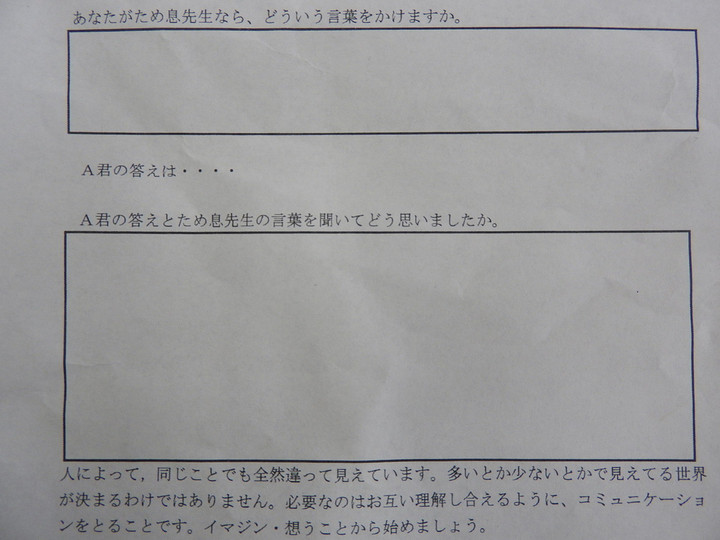 あなたがため息先生なら、どういう言葉をかけますか。
A君の答えは・・・・
A君の答えとため息先生の言葉を聞いてどう思いましたか。
人によって，同じことでも全然違って見えています。多いとか少ないとかで見えてる世界
が決まるわけではありません。必要なのはお互い理解し合えるように、コミュニケーショ
ンをとることです。イマジン・想うことから始めましょう。